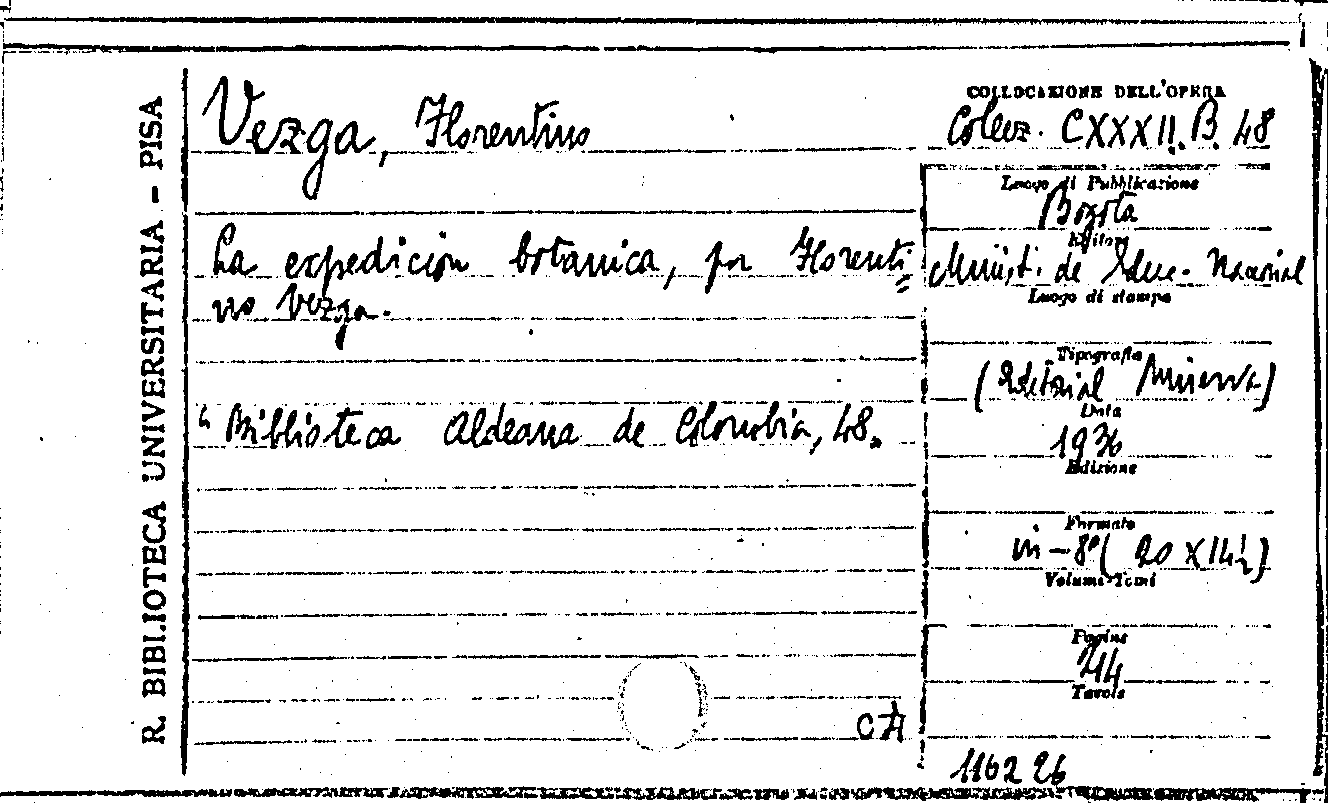 R. BIBLIOTECA UNIVERSITARIA - PISA
Vezga, Florentino
La expedicion botanica, por Florenti=
no Vezga.
"Biblioteca Aldeana de Colombia, 48„
CA
COLLOCAZIONE DELL'OPERA
Collez. CXXXII. B. 48
Luogo di Pubblicazione
Bogota
Editore
Minist. de Educ. Nacional
Luogo di stampa
Tipografia
(Editorial Minerva)
Data
1936
Edizione
Formato
in-8º( 20 X 14½)
Volumi-Tomi
Pagine
Tavole
116226